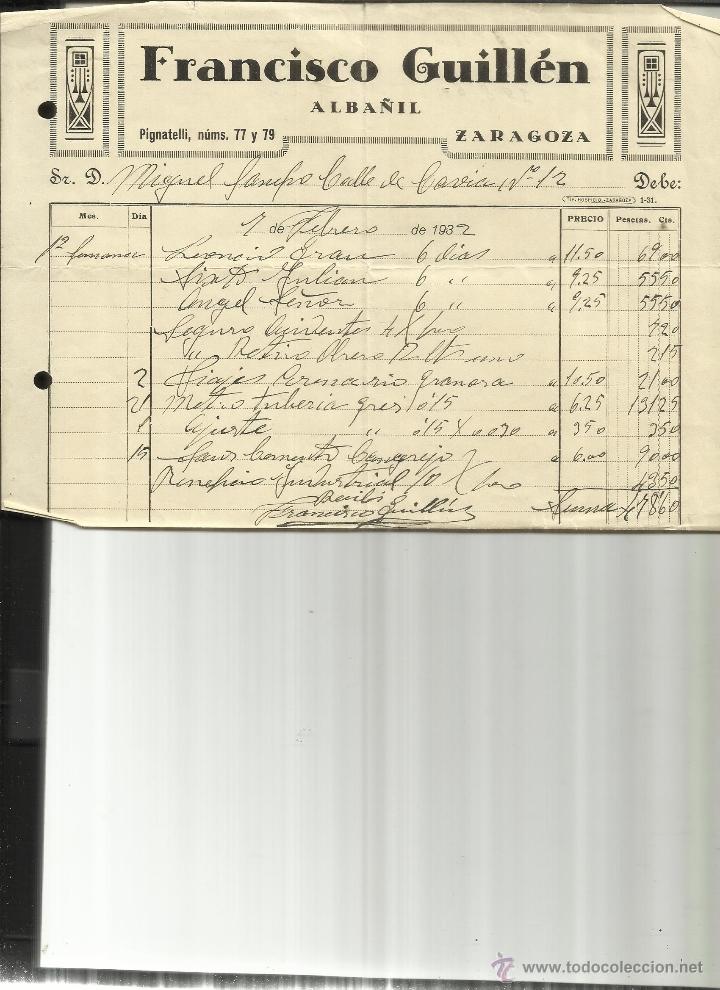 Francisco Guillén
ALBAÑIL
Pignatelli, núms. 77 y 79 ZARAGOZA
Sr. D. Miguel Calle de Cavia, Nº 12 Debe:
TIP. HOSPICIO-ZARAGOZA 1-31.
Mes. Día PRECIO Pesetas. Cts.
7 de Febrero de 1932
1ª Semana Leoncio Gran 6 dias a 11.50 69.00
Sixto Julian 6 " a 9.25 55.50
Angel Señor 6 " a 9.25 55.50
Seguro 4 7.20
" Retiro Obrero uno 2.15
2 Viajes granosa a 10.50 21.00
21 Metro tuberia gres 0'15 a 6.25 131.25
1 " 0'15 x 0.090 a 3.50 3.50
15 Sacos Cemento Cangrejo a 6.00 90.00
Beneficio Industrial 10 43.50
Recibí Suma 478.60
Francisco Guillén
www.todocoleccion.net